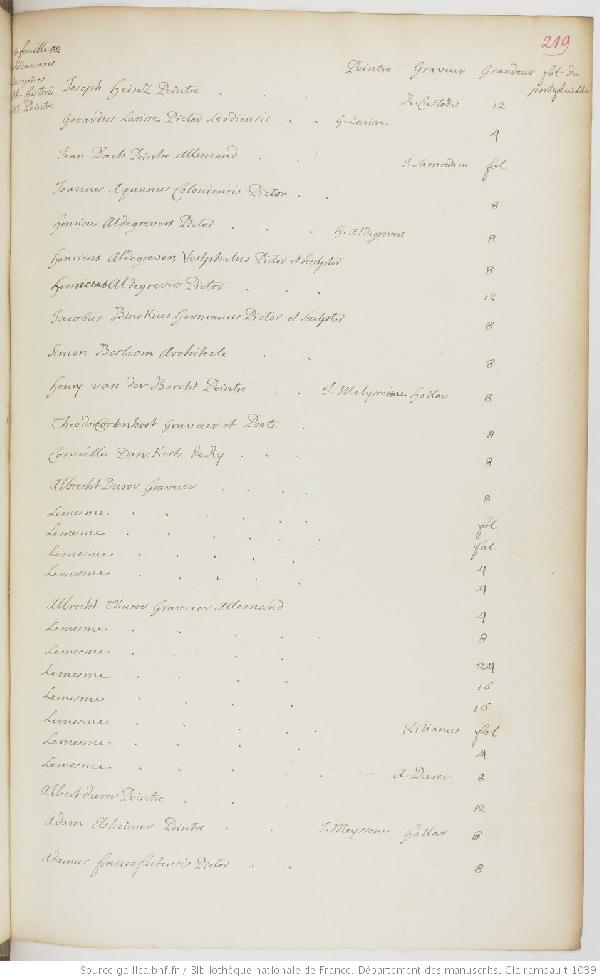 219
Peintre Graveur Grandeur fol. du
Joseph Heinz Peintre R. Custodis 12
Gerardus Lairisse Pictor Leodiensis G. Lairisse 4
Jean Dach Peintre Allemand J. Saenredam fol
Joannes Aquanus Coloniensis Pictor 8
Henricus Aldegrevers Pictor H. Aldegrevers 8
Henricus Aldegrevers Vestphalus Pictor et Sculptor 8
Henricus Aldegrevers Pictor 12
Jacobus Binckius Germanus Pictor et Sculptor 8
Simon Bosboom Architecte 8
Henry van der Borcht Peintre J. Hollar 8
Graveur et Poete 8
Corneille Danckerts de Ry 8
Albrecht Durer Graveur 8
Lemesme fol
Lemesme fol
Lemesme 4
Lemesme 4
Albrecht Durer Graveur Allemand 4
Lemesme 8
Lemesme 24
Lemesme 16
Lemesme 16
Lemesme Kilianus fol
Lemesme 4
Lemesme A. Durer 8
Albert Durer Peintre 12
Adam Elsheimer Peintre J. Meyssens Hollar 8
Adamus Francofurtensis Pictor 8
Source gallica.bnf.fr / Bibliothèque nationale de France. Département des manuscrits. Clairambault 1039